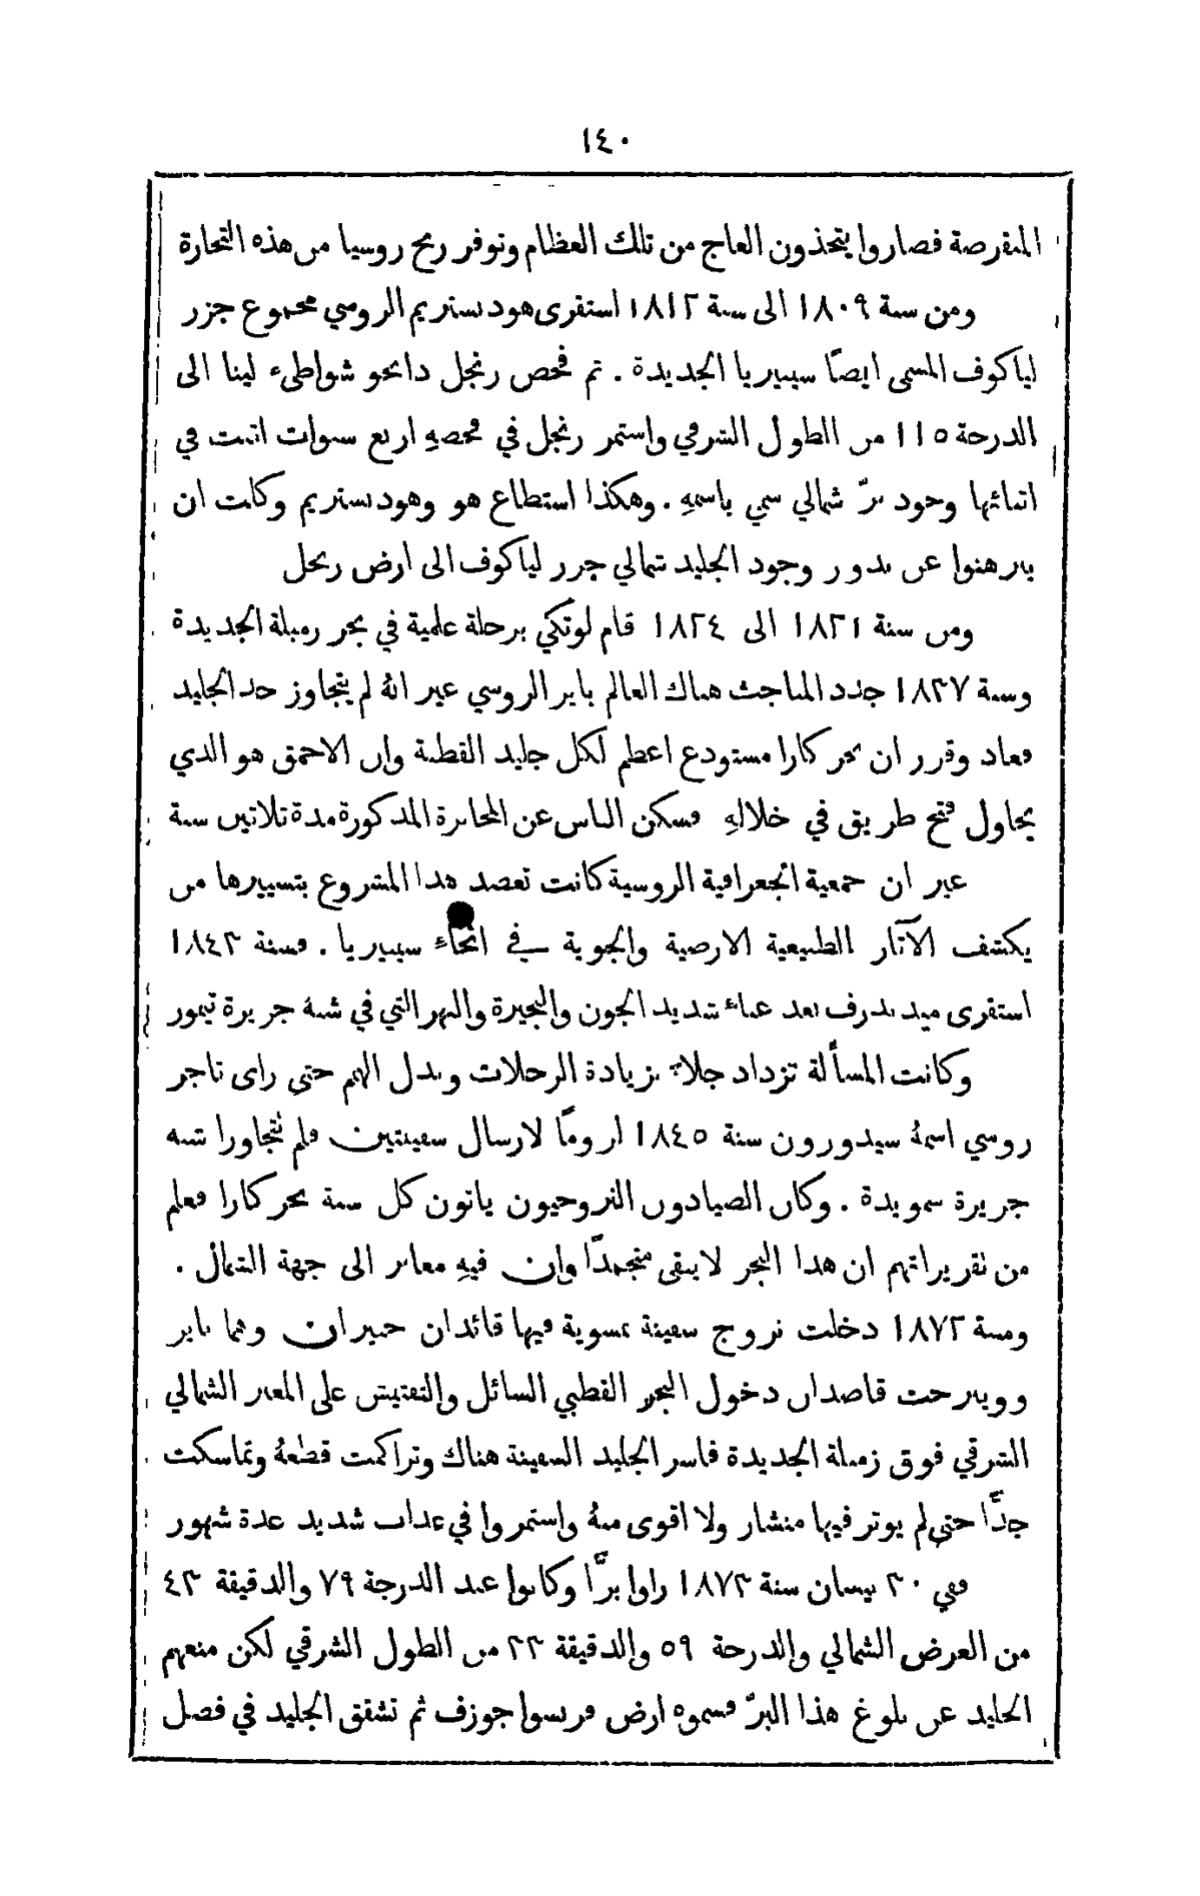 ١٤٠
المنقرضة فصاروا يتخذون العاج من تلك العظام وتوفر ربح روسيا من هذه التجارة
ومن سنة ١٨٠٩ الى سنة ١٨١٢ استقرى هودنستريم الروسي مجموع جزر
لياكوف المسمى ايضًا سيبيريا الجديدة . ثم فحص رنجل دانجو شواطىء لينا الى
الدرجة ١١٥ من الطول الشرقي واستمر رنجل في فحصهِ اربع سنوات اثبت في
اثنائها وجود برّ شمالي سمي باسمهِ . وهكذا استطاع هو وهودنستريم وكانت ان
يبرهنوا عن ندور وجود الجليد شمالي جزر لياكوف الى ارض رنجل
ومن سنة ١٨٢١ الى ١٨٢٤ قام لوتكي برحلة علمية في بحر زمبلة الجديدة
وسنة ١٨٣٧ جدد المباحث هناك العالم باير الروسي غير انهُ لم يتجاوز حد الجليد
فعاد وقرر ان بحر كارا مستودع اعظم لكل جليد القطبة وان الاحمق هو الذي
يحاول فتح طريق في خلالهِ فسكن الناس عن المخابرة المذكورة مدة ثلاثين سنة
غير ان جمعية الجغرافية الروسية كانت تعضد هذا المشروع بتسييرها من
يكتشف الآثار الطبيعية الارضية والجوية في انحاء سيبيريا . فسنة ١٨٤٣
استقرى ميدندرف بعد عناء شديد الجون والبحيرة والنهر التي في شبه جزيرة تيمور
وكانت المسألة تزداد جلاءً بزيادة الرحلات وبذل الهمم حتى راى تاجر
روسي اسمهُ سيدورون سنة ١٨٤٥ لزومًا لارسال سفينتين فلم تتجاوزا شبه
جزيرة سمويدة . وكان الصيادون النروجيون ياتون كل سنة بحر كارا فعلم
من تقريراتهم ان هذا البحر لا يبقى منجمدًا وان فيهِ معابر الى جهة الشمال .
وسنة ١٨٧٢ دخلت نروج سفينة نمسوية فيها قائدان خبيران وهما باير
وويبرخت قاصدان دخول البحر القطبي السائل والتفتيش على المعبر الشمالي
الشرقي فوق زمبلة الجديدة فاسر الجليد السفينة هناك وتراكمت قطعهُ وتماسكت
جدًّا حتى لم يوثر فيها منشار ولا اقوى منهُ واستمروا في عذاب شديد عدة شهور
ففي ٣٠ نيسان سنة ١٨٧٣ راوا برًّا وكانوا عند الدرجة ٧٩ والدقيقة ٤٣
من العرض الشمالي والدرجة ٥٩ والدقيقة ٣٣ من الطول الشرقي لكن منعهم
الجليد عن بلوغ هذا البرّ فسموه ارض فرنسوا جوزف ثم تشقق الجليد في فصل